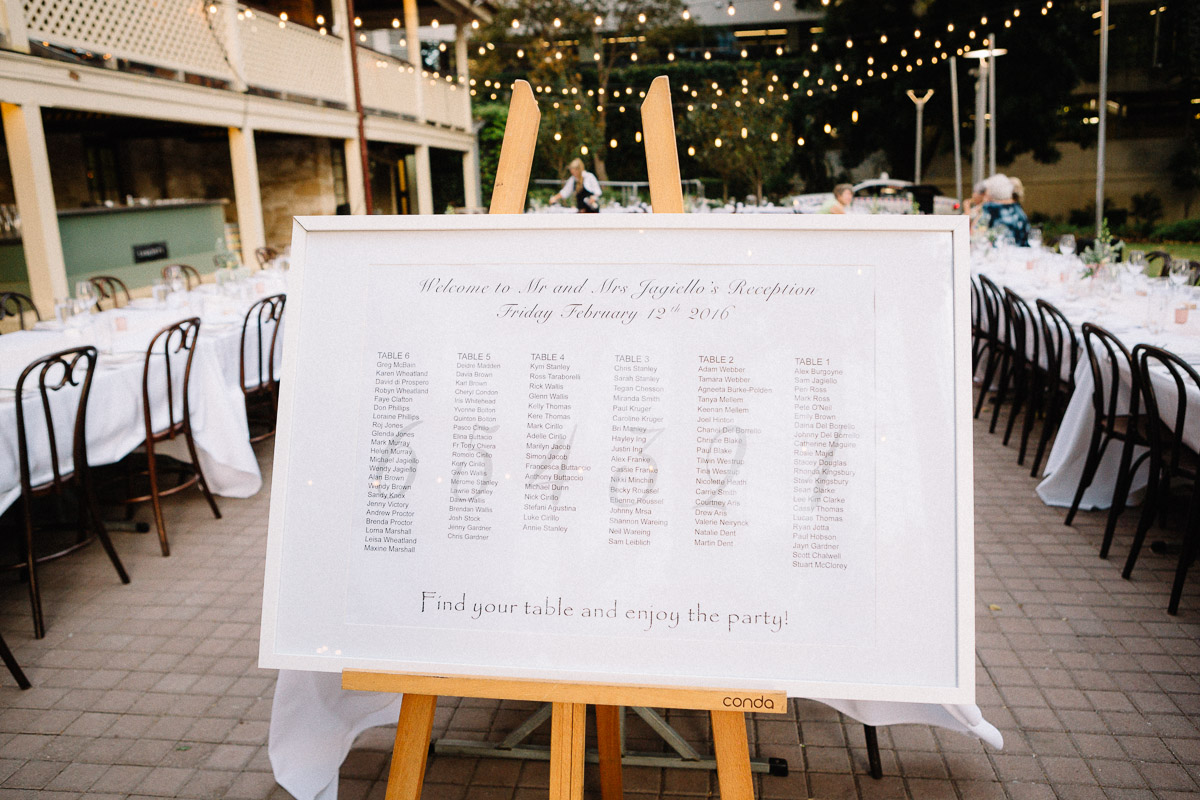 Welcome to Mr and Mrs Jagiello's Reception
Friday February 12th 2016
TABLE 6
Greg McBain
Karen Wheatland
David di Prospero
Robyn Wheatland
Faye Clafton
Don Phillips
Loraine Phillips
Roj Jones
Glenda Jones
Mark Murray
Helen Murray
Michael Jagiello
Wendy Jagiello
Alan Brown
Wendy Brown
Sandy Knox
Jenny Victory
Andrew Proctor
Brenda Proctor
Lorna Marshall
Leisa Wheatland
Maxine Marshall
TABLE 5
Deidre Madden
Davia Brown
Kari Brown
Cheryl Condon
Iris Whitehead
Yvonne Bolton
Quinton Bolton
Pasco Cirillo
Elina Buttacio
Fr Tony Chiera
Romolo Cirillo
Kerry Cirillo
Gwen Wallis
Merome Stanley
Lavina Stanley
Dawn Wallis
Brendan Wallis
Josh Stock
Jenny Gardner
Chris Gardner
TABLE 4
Kym Stanley
Ross Taraborelli
Rick Wallis
Glenn Wallis
Kelly Thomas
Kere Thomas
Mark Cirillo
Adelle Cirillo
Marilyn Jacob
Simon Jacob
Francesca Buttaccio
Anthony Buttaccio
Michael Dunn
Nick Cirillo
Stefani Agustina
Luke Cirillo
Annie Stanley
TABLE 3
Chris Stanley
Sarah Stanley
Tegan Chesson
Miranda Smith
Paul Kruger
Caroline Kruger
Bri Manley
Hayley Ing
Justin Ing
Alex Franke
Cassie Franke
Nikki Minchin
Becky Roussel
Etienne Roussel
Johnny Mrsa
Shannon Wareing
Neil Wareing
Sam Leiblich
TABLE 2
Adam Webber
Tamara Webber
Agneita Burke-Polden
Tanya Mellem
Keenan Mellem
Joel Hinton
Chanel Del Borrello
Christie Blake
Paul Blake
Tilwin Westrup
Tina Westrup
Nicolette Heath
Carrie Smith
Courtney Aris
Drew Aris
Valerie Neirynck
Natalie Dent
Martin Dent
TABLE 1
Alex Burgoyne
Sam Jagiello
Pen Ross
Mark Ross
Pete O'Neil
Emily Brown
Daina Del Borrello
Johnny Del Borrello
Catherine Maguire
Rosie Majid
Stacey Douglas
Rhonda Kingsbury
Steve Kingsbury
Sean Clarke
Lee Kim Clarke
Cassy Thomas
Lucas Thomas
Ryan Jotta
Paul Hobson
Jayn Gardner
Scott Chalwell
Stuart McClorey
Find your table and enjoy the party!
conda